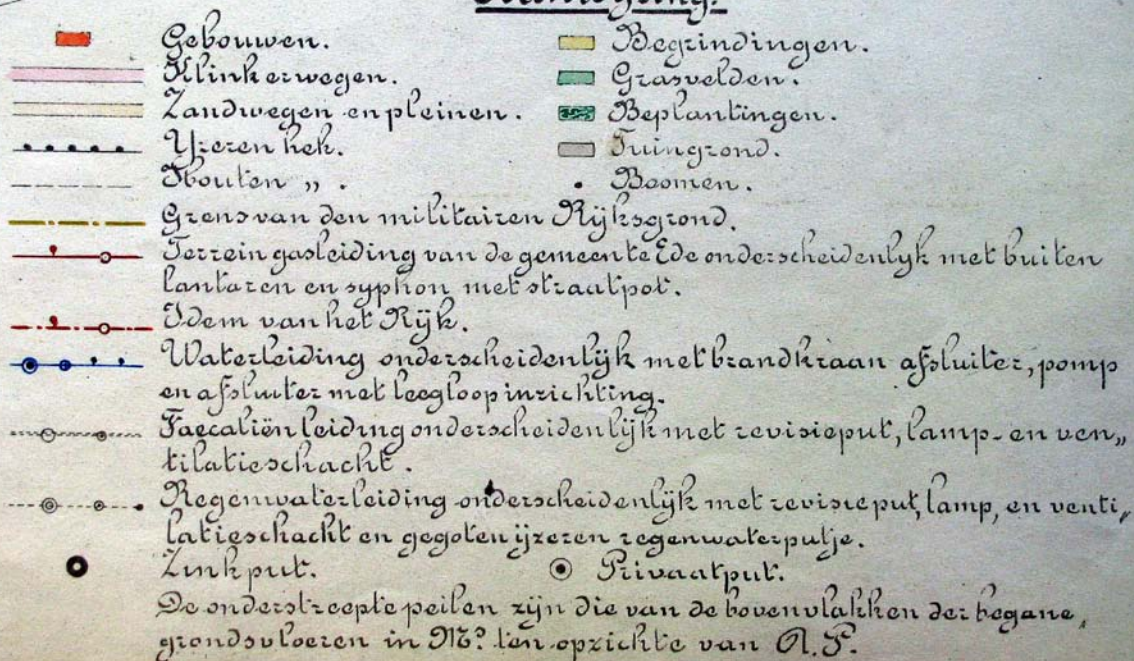 Gebouwen. Begrindingen.
Klinkerwegen. Grasvelden.
Zandwegen en pleinen. Beplantingen.
Yzeren hek. Tuingrond.
Houten „ . Boomen.
Grens van den militairen Rijksgrond.
Terrein gasleiding van de gemeente Ede onderscheidenlyk met buiten
lantaren en syphon met straatpot.
Idem van het Rijk.
Waterleiding onderscheidenlijk met brandkraan afsluiter, pomp
en afsluiter met leegloopinrichting.
Faecaliën leiding onderscheidenlijk met revisieput, lamp- en ven„
tilatieschacht.
Regenwaterleiding onderscheidenlijk met revisieput, lamp, en venti„
latieschacht en gegoten ijzeren regenwaterputje.
Zinkput. Privaatput.
De onderstreepte peilen zijn die van de bovenvlakken der begane„
grondsvloeren in M? ten opzichte van A.P.